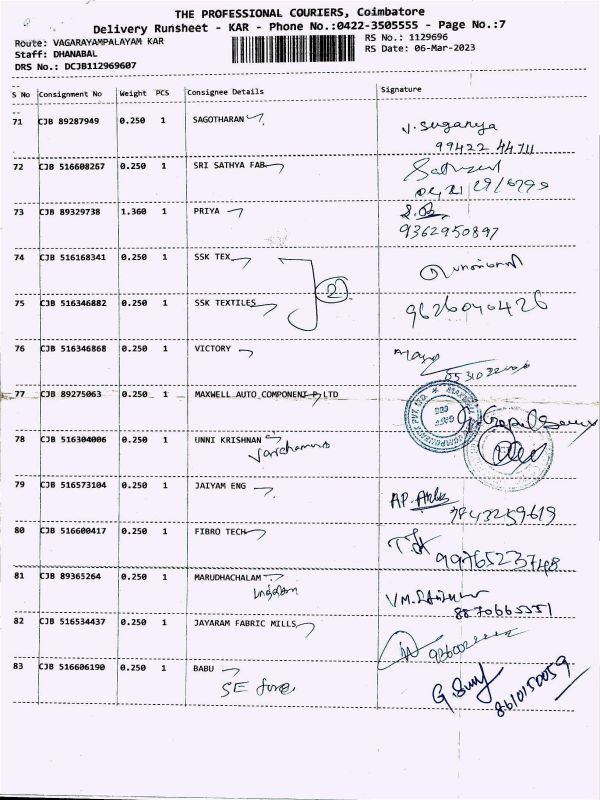 THE PROFESSIONAL COURIERS, Coimbatore
Delivery Runsheet - KAR - Phone No.:0422-3505555 - Page No.:7
Route: VAGARAYAMPALAYAM KAR
Staff: DHANABAL
DRS No.: DCJB112969607
RS No.: 1129696
RS Date: 06-Mar-2023
S No Consignment No Weight PCS Consignee Details Signature
71 CJB 89287949 0.250 1 SAGOTHARAN V. Suganya
99422 44711
72 CJB 516608267 0.250 1 SRI SATHYA FAB
73 CJB 89329738 1.360 1 PRIYA
9362950897
74 CJB 516168341 0.250 1 SSK TEX
2
75 CJB 516346882 0.250 1 SSK TEXTILES 9626040426
76 CJB 516346868 0.250 1 VICTORY
77 CJB 89275063 0.250 1 MAXWELL AUTO COMPONENT P LTD
78 CJB 516304006 0.250 1 UNNI KRISHNAN
79 CJB 516573104 0.250 1 JAIYAM ENG
7843259619
80 CJB 516600417 0.250 1 FIBRO TECH
81 CJB 89365264 0.250 1 MARUDHACHALAM
8870665551
82 CJB 516534437 0.250 1 JAYARAM FABRIC MILLS
83 CJB 516606190 0.250 1 BABU
8610150059